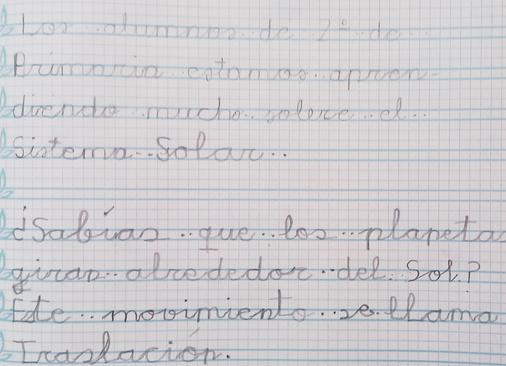 Los alumnos de 2º de
Primaria estamos apren-
diendo mucho sobre el
Sistema Solar.
¿Sabías que los planeta
giran alrededor del Sol?
Este movimiento se llama
Traslación.